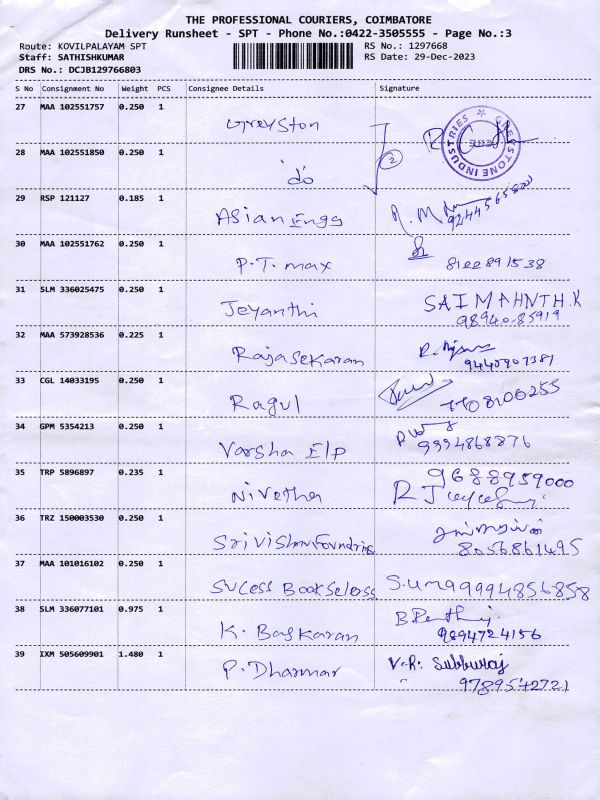 THE PROFESSIONAL COURIERS, COIMBATORE
Delivery Runsheet - SPT - Phone No.:0422-3505555 - Page No.:3
Route: KOVILPALAYAM SPT RS No.: 1297668
Staff: SATHISHKUMAR RS Date: 29-Dec-2023
DRS No.: DCJB129766803
S No Consignment No Weight PCS Consignee Details Signature
27 MAA 102551757 0.250 1 Greyston
GREYSTONE INDUSTRIES
28 MAA 102551850 0.250 1 do 2
29 RSP 121127 0.185 1 Asian Engg
30 MAA 102551762 0.250 1 P.T. max 8122891538
31 SLM 336025475 0.250 1 Jeyanthi SAIMAHNTH.K
98940-85919
32 MAA 573928536 0.225 1 Rajasekaran
9440907381
33 CGL 14033195 0.250 1 Ragul 7708106255
34 GPM 5354213 0.250 1 Varsha Elp 9994868876
35 TRP 5896897 0.235 1 Nivetha 9688959000
36 TRZ 150003530 0.250 1 Sri Vishnu Foundries
8056861495
37 MAA 101016102 0.250 1 Sucess Book Selerss 9994856858
38 SLM 336077101 0.975 1 K. Baskaran
9894724156
39 IXM 505609901 1.480 1 P. Dharmar V.R. Subburaj
9789542721